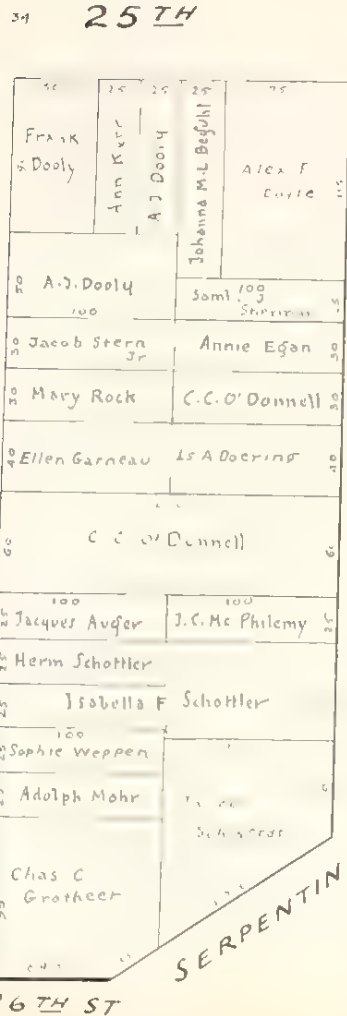 34
25TH
25
25
25
75
Frank
& Dooly
Ann Kerr
A J Dooly
Johanna M.L Befuhl
Alex F
Coyle
50
A.J. Dooly
100
Saml J
100
30
Jacob Stern
Jr
Annie Egan
30
30
Mary Rock
C.C. O'Donnell
30
40
Ellen Garneau
Is A Doering
40
60
C C O'Donnell
60
100
100
25
Jacques Auger
J.C. Mc Philemy
25
25
Herm Schottler
25
Isabella F Schottler
100
25
Sophie Weppen
25
Adolph Mohr
Chas C
Grotheer
SERPENTIN
6TH ST